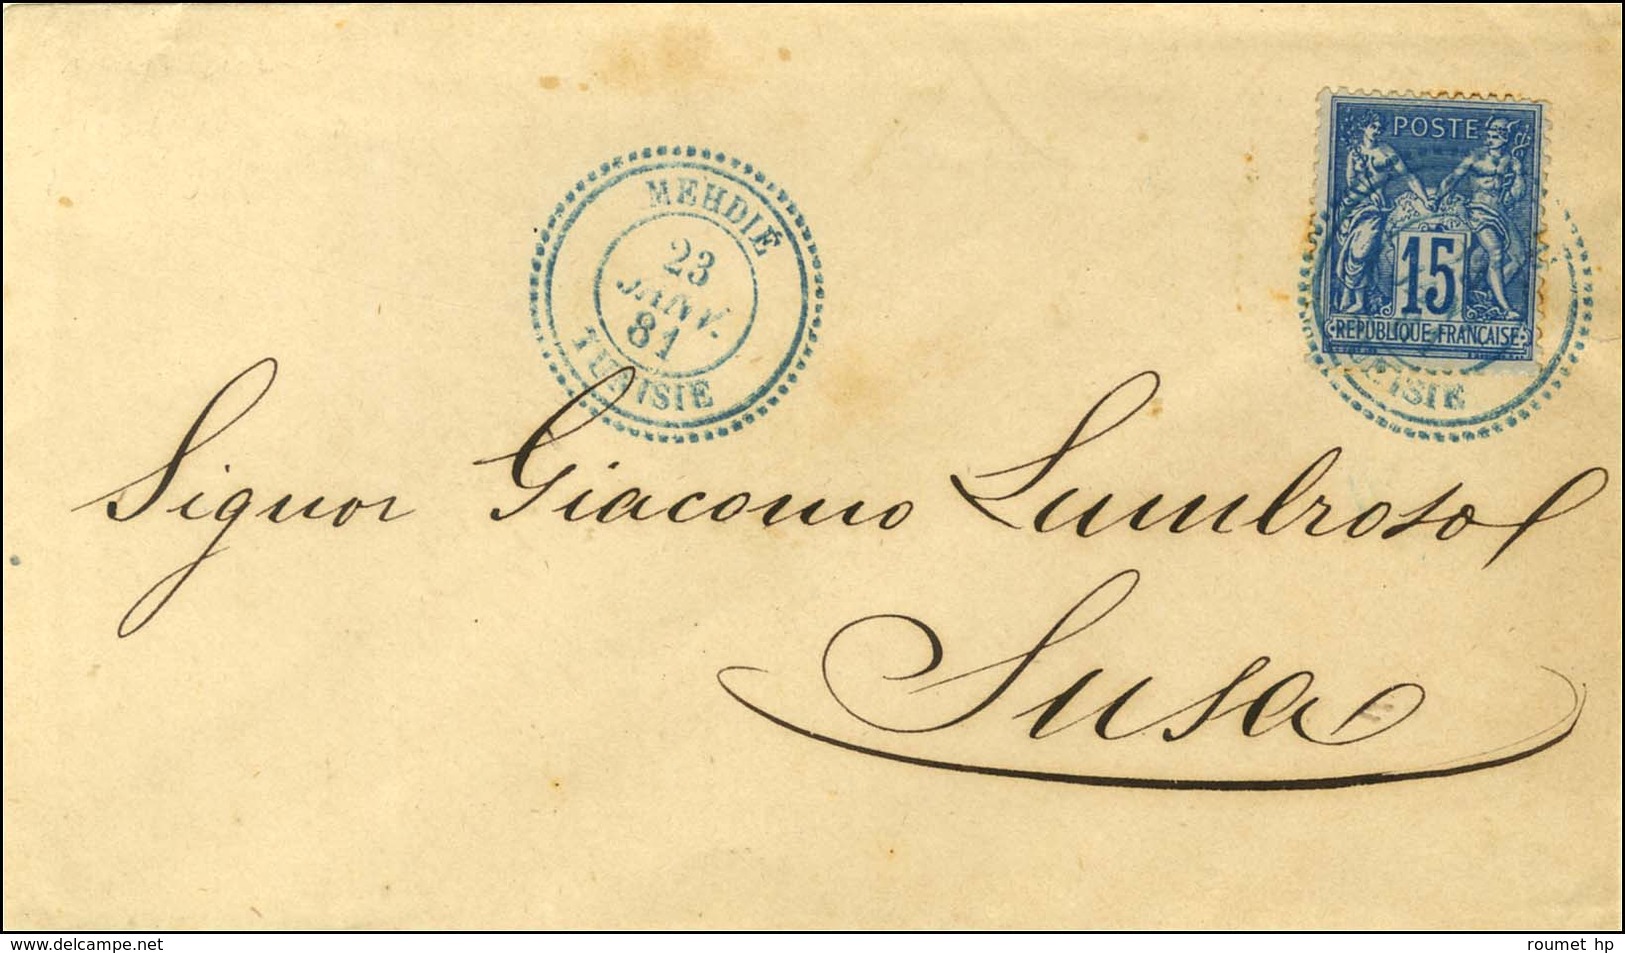 POSTE
15
REPUBLIQUE FRANCAISE
MEHDIÉ
23
JANV.
81
TUNISIE
Signor Giacomo Lumbroso
Susa
www.delcampe.net
roumet hp